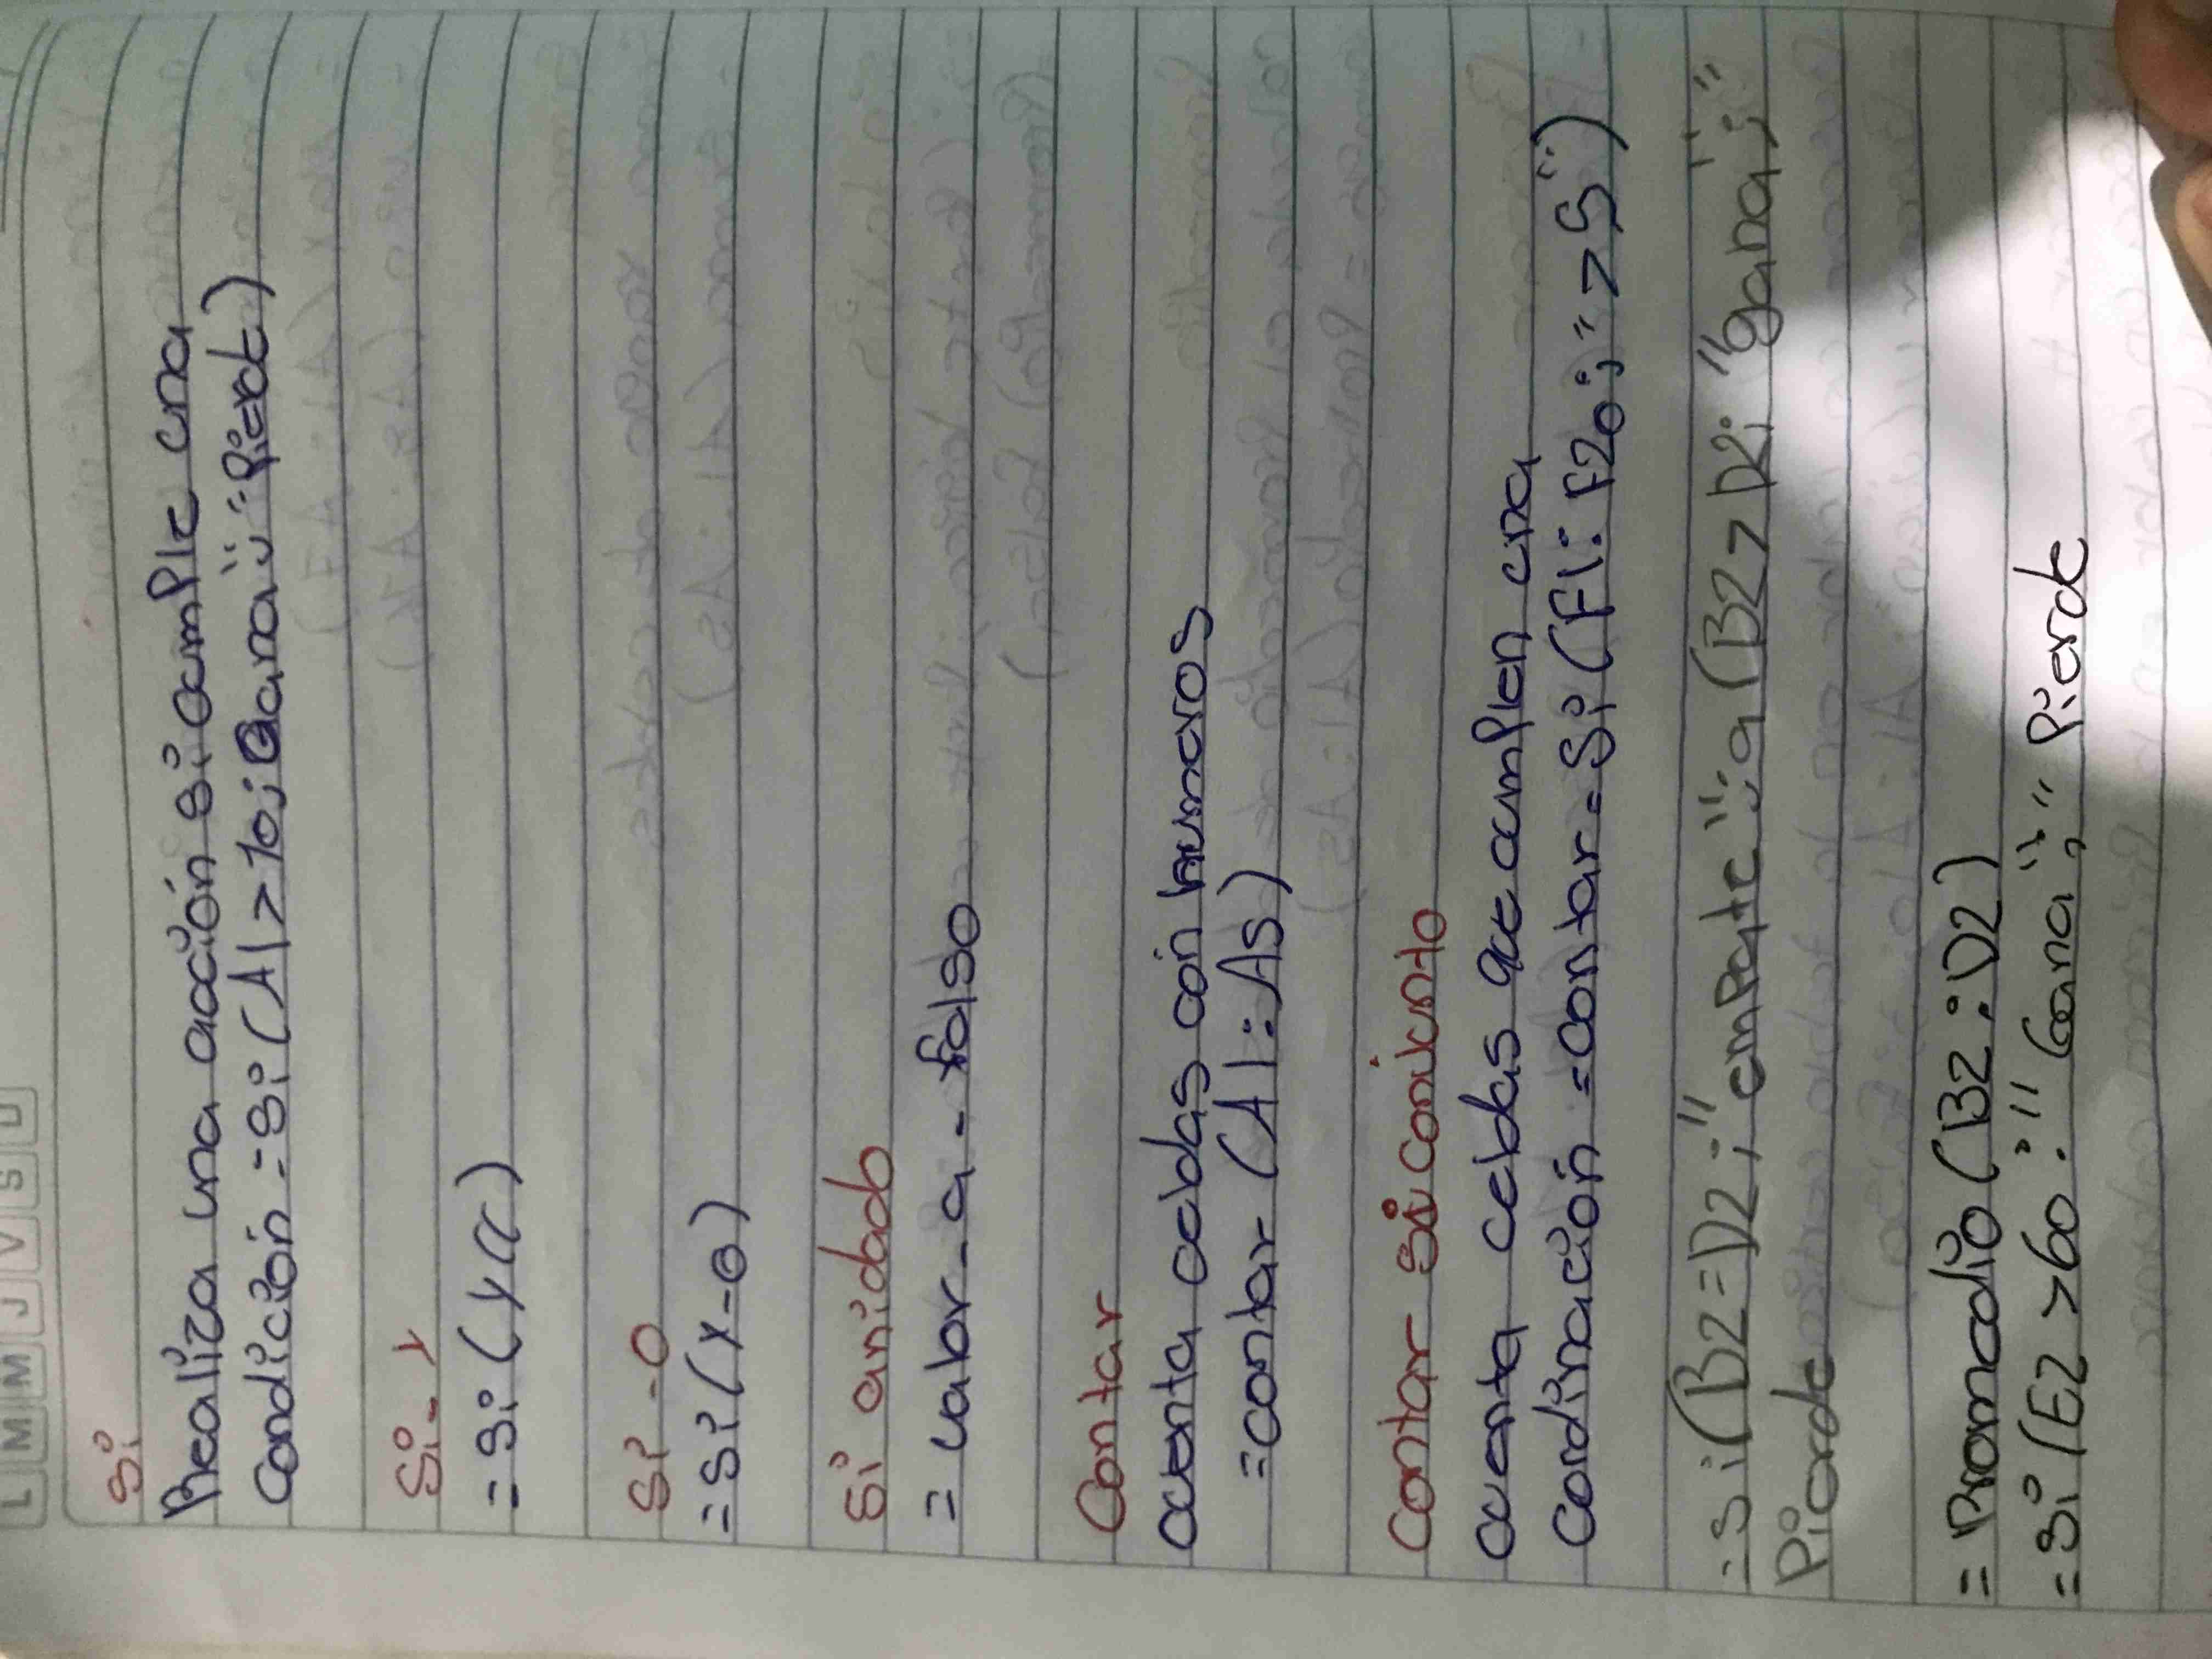 L M M J V S D
Si
Realiza una acción si cumple una
condición = Si (A1>10; Gana"; "Pierde)
Si - y
= Si (y a)
Si - o
= Si (Y-O)
Si anidado
= valor - a - falso
Contar
cuenta celdas con numeros
= contar (A1:A5)
Contar si conjunto
cuenta celdas que cumplen una
Condinación = contar = Si (F1:F20; ">5")
= Si (B2=D2; "empate"; a (B2>D2; "gana;"
Pierde
= Promedio (B2:D2)
= Si (E2 >60:" Gana"; " Pierde